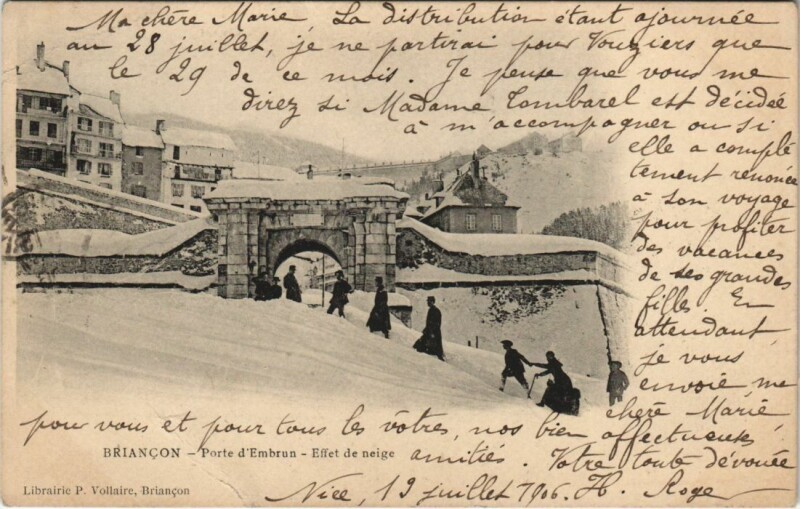 Ma chère Marie, La distribution étant ajournée
au 28 juillet, je ne partirai pour Vouziers que
le 29 de ce mois. Je pense que vous me
direz si Madame Tombarel est décidée
à m'accompagner ou si
elle a complè
tement renoncé
à son voyage
pour profiter
des vacances
de ses grandes
filles. En
attendant
je vous
envoie, ma
chère Marie,
pour vous et pour tous les vôtres, nos bien affectueuses
amitiés. Votre toute dévouée
Nice, 19 juillet 1906. H. Roge
BRIANÇON - Porte d'Embrun - Effet de neige
Librairie P. Vollaire, Briançon